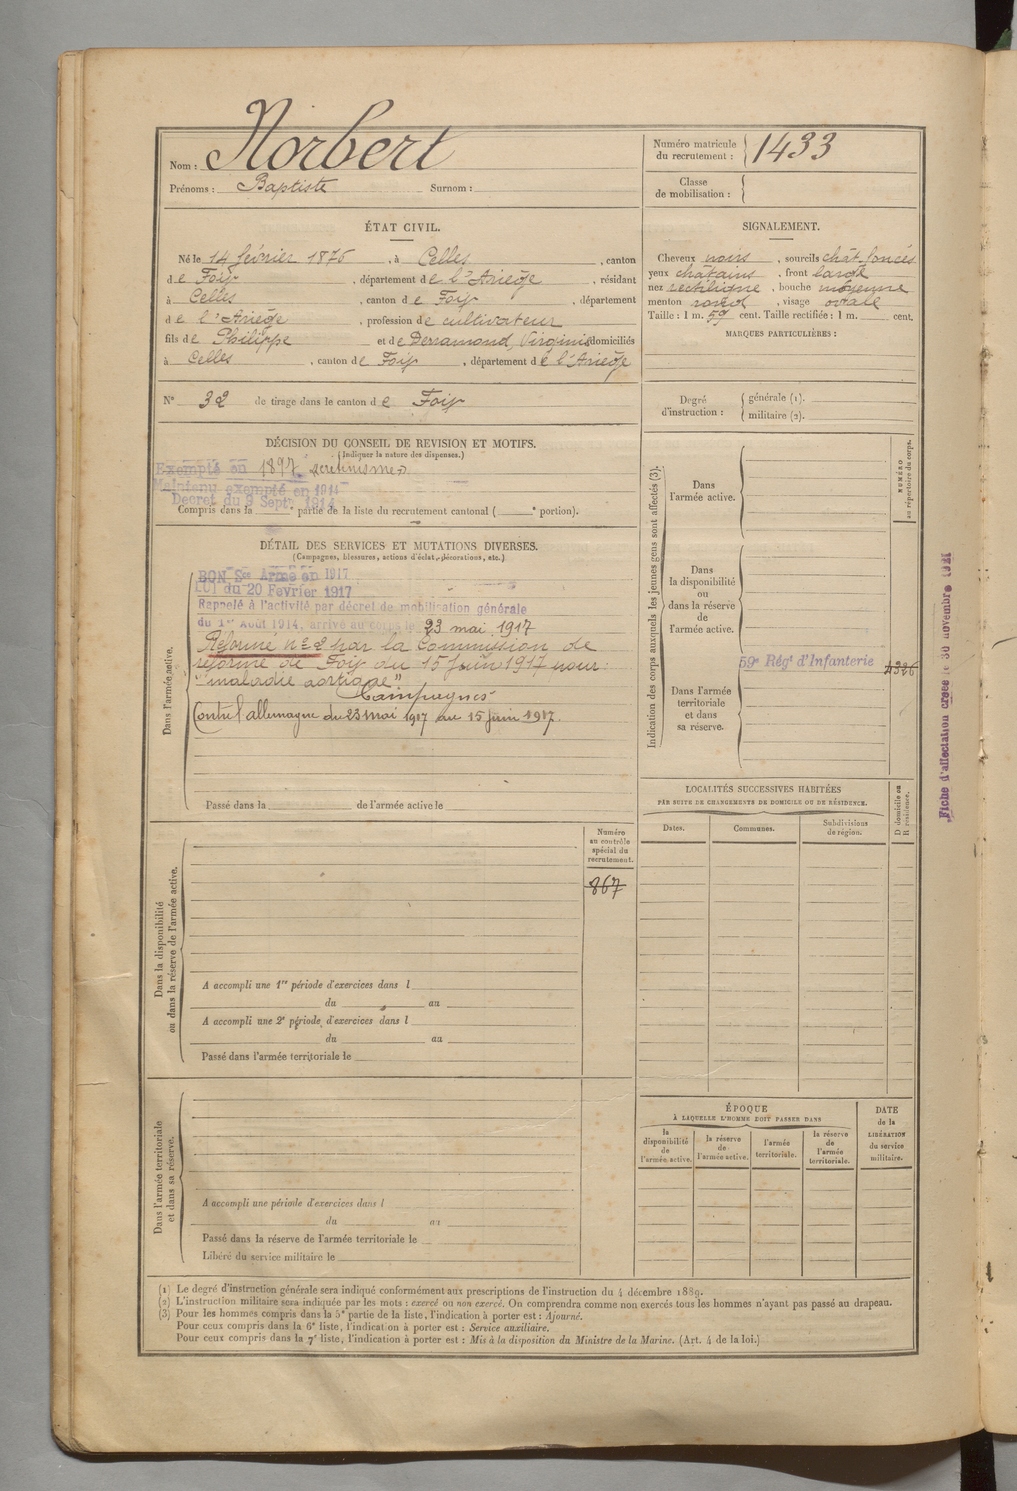 Nom : Norbert
Prénoms : Baptiste Surnom :
Numéro matricule du recrutement : 1433
Classe de mobilisation :
ÉTAT CIVIL.
Né le 14 février 1876, à Celles, canton
de Foix, département de l'Ariège, résidant
à Celles, canton de Foix, département
de l'Ariège, profession de cultivateur
fils de Philippe et de Derramond, Virginie domiciliés
à Celles, canton de Foix, département de l'Ariège
N° 32 de tirage dans le canton de Foix
SIGNALEMENT.
Cheveux noirs, sourcils chât. foncés
yeux châtains, front large
nez rectiligne, bouche moyenne
menton rond, visage ovale
Taille : 1 m. 59 cent. Taille rectifiée : 1 m. cent.
MARQUES PARTICULIÈRES :
Degré d'instruction : générale (1).
militaire (2).
DÉCISION DU CONSEIL DE REVISION ET MOTIFS.
(Indiquer la nature des dispenses.)
Exempté en 1897. cretinisme.
Maintenu exempté en 1914
Décret du 9 Sept. 1914
Compris dans la e partie de la liste du recrutement cantonal ( e portion).
DÉTAIL DES SERVICES ET MUTATIONS DIVERSES.
(Campagnes, blessures, actions d'éclat, décorations, etc.)
Dans l'armée active.
BON Sce Armé en 1917
LOI du 20 Fevrier 1917
Rappelé à l'activité par décret de mobilisation générale
du 1er Août 1914, arrivé au corps le 23 mai 1917
Réformé n° 2 par la Commission de
réforme de Foix du 15 juin 1917 pour :
"maladie aortique"
Campagnes
Contre l'allemagne du 23 mai 1917 au 15 juin 1917.
Passé dans la de l'armée active le
Indication des corps auxquels les jeunes gens sont affectés (3).
NUMÉRO au répertoire du corps.
Dans l'armée active.
Dans la disponibilité ou dans la réserve de l'armée active.
Dans l'armée territoriale et dans sa réserve.
59e Régt d'Infanterie 4326
Fiche d'affectation créée le 30 novembre 1921
LOCALITÉS SUCCESSIVES HABITÉES
PAR SUITE DE CHANGEMENTS DE DOMICILE OU DE RÉSIDENCE.
Dates. Communes. Subdivisions de région. D domicile ou R résidence.
Dans la disponibilité ou dans la réserve de l'armée active.
Numéro au contrôle spécial du recrutement.
867
A accompli une 1re période d'exercices dans l
du au
A accompli une 2e période d'exercices dans l
du au
Passé dans l'armée territoriale le
Dans l'armée territoriale et dans sa réserve.
A accompli une période d'exercices dans l
du au
Passé dans la réserve de l'armée territoriale le
Libéré du service militaire le
ÉPOQUE
À LAQUELLE L'HOMME DOIT PASSER DANS
la disponibilité de l'armée active.
la réserve de l'armée active.
l'armée territoriale.
la réserve de l'armée territoriale.
DATE de la LIBÉRATION du service militaire.
(1) Le degré d'instruction générale sera indiqué conformément aux prescriptions de l'instruction du 4 décembre 1889.
(2) L'instruction militaire sera indiquée par les mots : exercé ou non exercé. On comprendra comme non exercés tous les hommes n'ayant pas passé au drapeau.
(3) Pour les hommes compris dans la 5e partie de la liste, l'indication à porter est : Ajourné.
Pour ceux compris dans la 6e liste, l'indication à porter est : Service auxiliaire.
Pour ceux compris dans la 7e liste, l'indication à porter est : Mis à la disposition du Ministre de la Marine. (Art. 4 de la loi.)